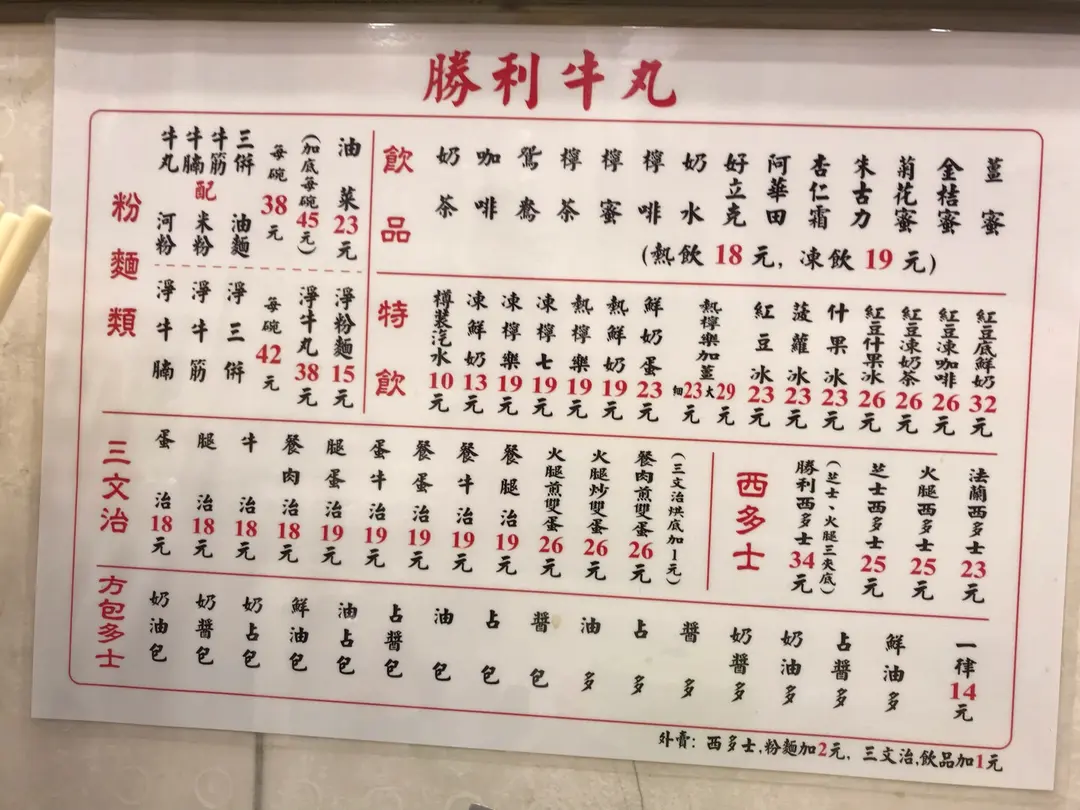 勝利牛丸
粉麵類
牛丸
牛腩
牛筋
三併
配
河粉
米粉
油麵
每碗38元
(加底每碗45元)
油菜23元
淨牛腩
淨牛筋
淨三併
每碗42元
淨牛丸38元
淨粉麵15元
飲品
奶茶
咖啡
鴛鴦
檸茶
檸蜜
檸啡
奶水
好立克
阿華田
杏仁霜
朱古力
菊花蜜
金桔蜜
薑蜜
(熱飲18元，凍飲19元)
特飲
樽裝汽水10元
凍鮮奶13元
凍檸樂19元
凍檸七19元
熱檸樂19元
熱鮮奶19元
鮮奶蛋23元
熱檸樂加薑
細23元
大29元
紅豆冰23元
菠蘿冰23元
什果冰23元
紅豆什果冰26元
紅豆凍奶茶26元
紅豆凍咖啡26元
紅豆底鮮奶32元
三文治
蛋治18元
腿治18元
牛治18元
餐肉治18元
腿蛋治19元
蛋牛治19元
餐蛋治19元
餐牛治19元
餐腿治19元
火腿煎雙蛋26元
火腿炒雙蛋26元
餐肉煎雙蛋26元
(三文治烘底加1元)
西多士
勝利西多士34元
(芝士、火腿三夾底)
芝士西多士25元
火腿西多士25元
法蘭西多士23元
方包多士
奶油包
奶醬包
奶占包
鮮油包
油占包
占醬包
油包
占包
醬包
油多
占多
醬多
奶醬多
奶油多
占醬多
鮮油多
一律14元
外賣：西多士,粉麵加2元，三文治,飲品加1元